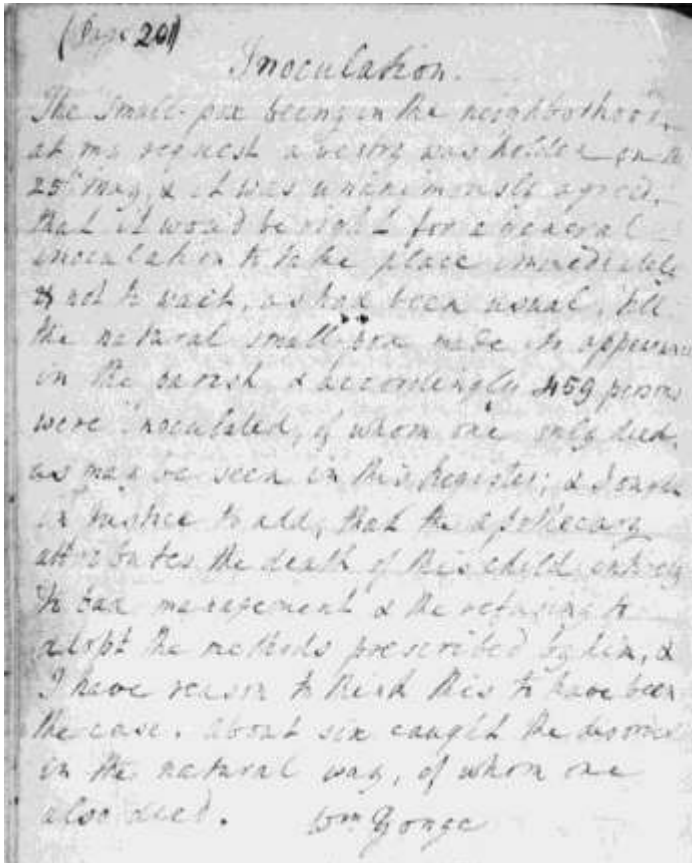 (Page 201)
Inoculation.
The Small-pox being in the neighborhood,
at my request a vestry was holden on the
25th May, & it was unanimously agreed,
that it wou'd be right for a general
inoculation to take place immediately
& not to wait, as has been usual, till
the natural small-pox made its appearance
in the parish & accordingly 459 persons
were inoculated, of whom one only died,
as may be seen in this Register; & I ought
in Justice to add, that the apothecary
attributes the death of this child entirely
to bad management & the refusing to
adopt the methods prescribed by him, &
I have reason to think this to have been
the case. About six caught the disorder
in the natural way, of whom one
also died. Wm Gouge